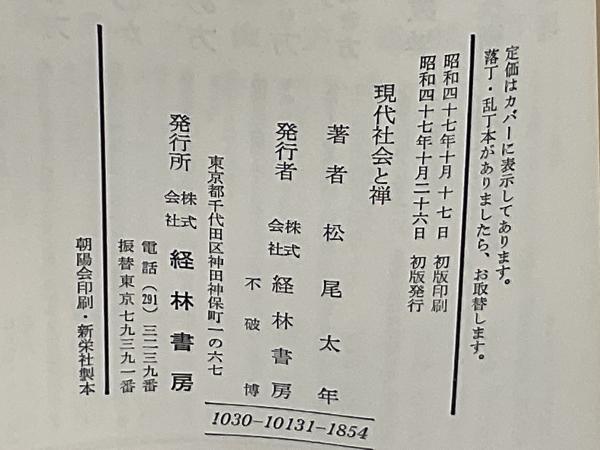 定価はカバーに表示してあります。
落丁・乱丁本がありましたら、お取替します。
昭和四十七年十月十七日 初版印刷
昭和四十七年十月二十六日 初版発行
現代社会と禅
著者 松尾太年
発行者 株式会社 経林書房
不破博
東京都千代田区神田神保町一の六七
発行所 株式会社 経林書房
電話(291)三二三九番
振替東京七九三九一番
朝陽会印刷・新栄社製本
1030-10131-1854